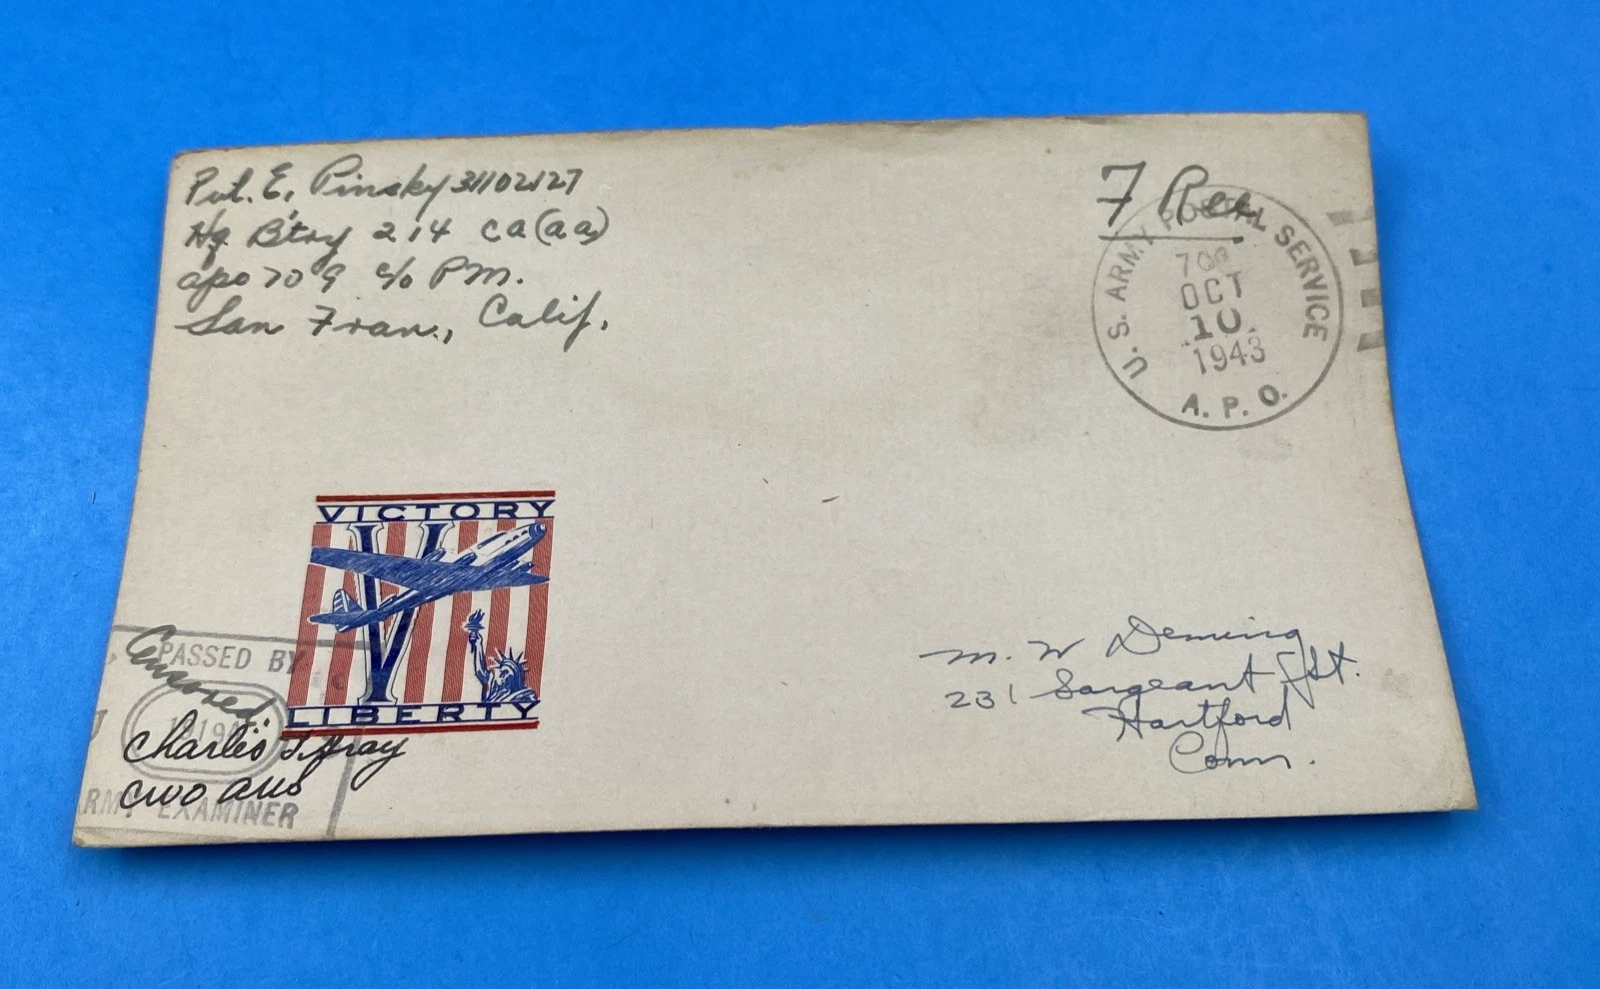 Pvt. E. Pinsky 31102127
Hq Btry 214 ca (aa)
apo 709 c/o PM.
San Fran., Calif.
7 Ree
U. S. ARMY POSTAL SERVICE
709
OCT
10
1943
A. P. O.
VICTORY
V
LIBERTY
PASSED BY
Censored:
Charles T. Gray
CWO AUS
ARMY EXAMINER
M. W Deming
231 Sargeant St.
Hartford
Conn.